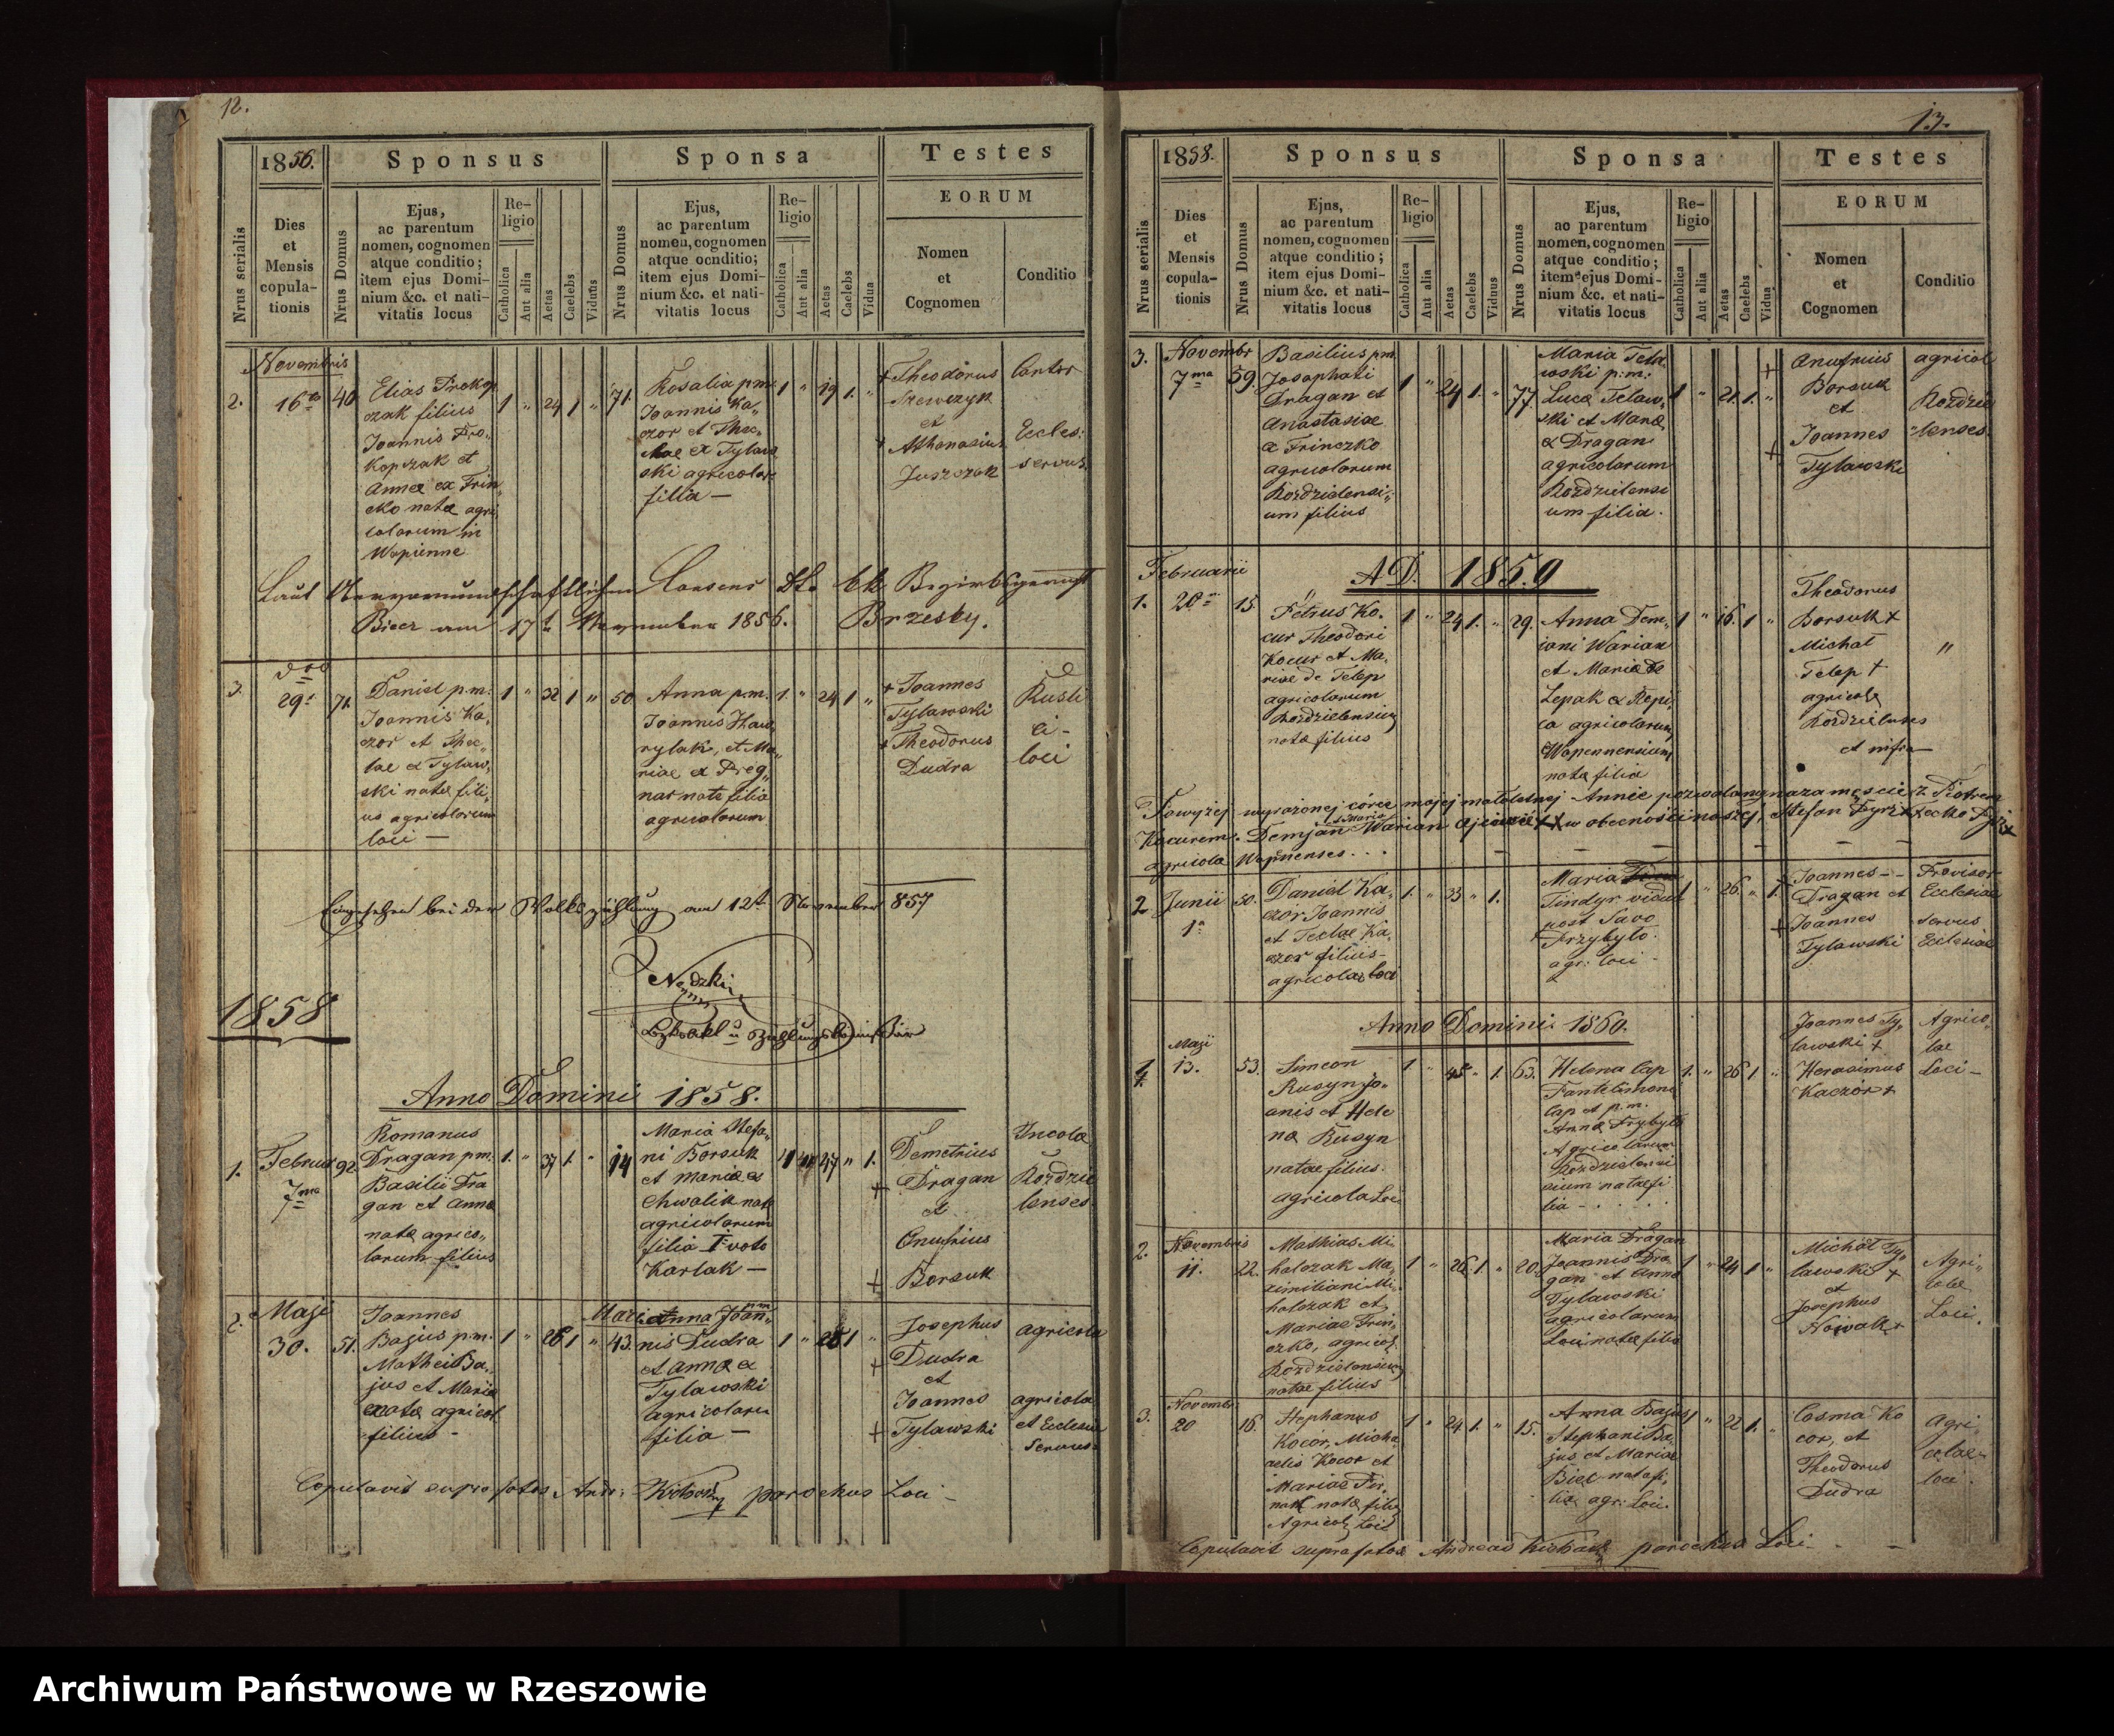 12.
1856.
Sponsus
Sponsa
Testes
EORUM
Nrus serialis
Dies
et
Mensis
copula-
tionis
Nrus Domus
Ejus,
ac parentum
nomen, cognomen
atque conditio;
item ejus Domi-
nium &c. et nati-
vitatis locus
Re-
ligio
Catholica
Aut alia
Aetas
Caelebs
Viduus
Nrus Domus
Ejus,
ac parentum
nomen, cognomen
atque ocnditio;
item ejus Domi-
nium &c. et nati-
vitatis locus
Re-
ligio
Catholica
Aut alia
Aetas
Caelebs
Vidua
Nomen
et
Cognomen
Conditio
2.
Novembris
16ta
40
Elias Prokop
czak filius
Joannis Pro„
kopczak et
Annae ex Frin„
cko natae agri
colarum in
Wapienne
1 „ 24 1 „
71.
Rosalia p.m.
Joannis Ka„
czor et Thec„
lae ex Tylaw
ski agricolar
filia —
1 „ 19 1. „
Theodorus
Szewczyk
et
Athanasius
Juszczak
Cantor
Eccles:
servus
Laut
Consens
Bezirksgericht
Biecz am 17t November 1856.
3.
29.
71.
Daniel p.m.
Joannis Ka„
czor et Thec„
lae ex Tylaw„
ski natae fili„
us agricolarum
loci —
1 „ 32 1 „
50
Anna p.m.
Joannis Haw„
rylak, et Ma„
riae ex Dreg„
nar natae filia
agricolarum
1. „ 24 1 „
+ Joannes
Tylawski
+ Theodorus
Dudra
Rusti
ci -
loci
Eingesehen bei der Volkszählung am 12t November 857
1858
Anno Domini 1858.
1.
Februar
7ma
92.
Romanus
Dragan p.m.
Basilii Dra
gan et Anna
natae agrico„
larum filius
1. „ 37 1. „
14
Maria Stefa„
ni Borsuk
et Mariae ex
Chwalik natae
agricolarum
filia I voto
Karlak —
1 „ 47 „ 1.
Demetrius
+ Dragan
et
Onufrius
+ Borsuk
Incolae
Rozdzie
lenses
2.
Maji
30.
51.
Joannes
Bajus p.m.
Mathei Ba„
jus et Maria
natae agricol
filius -
1 „ 26 1 „
43.
Marianna Joan„
nis Dudra
et Annae ex
Tylawski
agricolaru
filia —
1 „ 26 1 „
Josephus
+ Dudra
et
Joannes
+ Tylawski
agricola
agricola
et Ecclesiae
Servus
Copulavit supra fatos Andr: parochus Loci -
13.
1858.
Sponsus
Sponsa
Testes
EORUM
Nrus serialis
Dies
et
Mensis
copula-
tionis
Nrus Domus
Ejns,
ac parentum
nomen, cognomen
atque conditio;
item ejus Domi-
nium &c. et nati-
vitatis locus
Re-
ligio
Catholica
Aut alia
Aetas
Caelebs
Viduus
Nrus Domus
Ejus,
ac parentum
nomen, cognomen
atque conditio;
item ejus Domi-
nium &c. et nati-
vitatis locus
Re-
ligio
Catholica
Aut alia
Aetas
Caelebs
Vidua
Nomen
et
Cognomen
Conditio
3.
Novembr
7ma
59.
Basilius p.m.
Josaphati
Dragan et
Anastasiae
ex Frinczko
agricolarum
Rozdzielensi„
um filius
1 „ 24 1. „
77.
Maria Tela
wski p:m:
Lucae Telaw„
ski et Mariae
ex Dragan
agricolarum
Rozdzielensi
um filia.
1 „ 21. 1. „
+ Anufrius
Borsuk
et
Joannes
+ Tylawski
agricol
Rozdzie
„lenses
AD. 1859
1.
Februarii
20
15.
Petrus Ko„
cur Theodori
Kocur et Ma„
riae de Telep
agricolarum
Rozdzielensium
natae filius
1 „ 24 1. „
29.
Anna Dem„
iani Warian
et Mariae de
Lepak ex Repi„
ca agricolarum
Wapennensium
natae filia
1 „ 16. 1 „
Theodorus
Borsuk +
Michał „
Telep +
agricolae
Rozdzielenses
et infra —
Powyżej wyrażonej córce mojej małoletnej Annie pozwalamy na zamęście z Piotrem
Kocurem. Demjan Warian ojciec ++ w obecności naszej, Stefan Fyrz + Fecko Fyrz +
agricola Wapnenses . . .
2
Junii
1a
50.
Daniel Ka„
czor Joannis
et Teclae Ka„
czor filius -
agricolae loci
1. „ 33 „ 1.
Maria
Tindyr vidua
post Savo
Przybyło.
agr: loci -
1 „ 26. „ 1.
Joannes - -
Dragan et
+ Joannes
Tylawski
Provisor
Ecclesiae
servus
Ecclesiae
Anno Domini 1860.
1
Maji
13.
53.
Simeon
Rusyn Jo„
anis et Hele
na Rusyn
natae filius.
agricola Loci
1 „ 45 „ 1.
63.
Helena Cap
Pantelimonis
Cap et p.m.
Anna Przybyło
Agricolarum
Rozdzielensi
cium natae fi
lia - . . . .
1. „ 26 1 „
Joannes Ty„
lawski +
Herasimus
Kaczor +
Agrico„
lae
Loci -
2.
Novembris
11.
22.
Mathias Mi
halczak Ma„
ximiliani Mi„
halczak et
Mariae Frin„
czko, agricol.
Rozdzielensium
natae filius
1 „ 26. 1. „
20.
Maria Dragan
Joannis Dra
gan et Anna
Tylawski
agricolarum
Loci natae filia
1 „ 24 1 „
Michał Ty„
lawski +
et
Josephus
Nowak +
Agri„
colae
Loci.
3.
Novembr.
20
16.
Stephanus
Kocor, Micha„
aelis Kocor et
Mariae
natae filiu
Agricol. Loci
1 „ 24 1. „
15.
Anna Bajus
Stephani Ba„
jus et Mariae
Biel natae fi„
lia agr: Loci.
1 „ 22 1. „
Cosma Ko
cor, et
Theodorus
Dudra
Agri„
colae -
loci.
Copulavit supra fatos Andreas parochus Loci -
Archiwum Państwowe w Rzeszowie